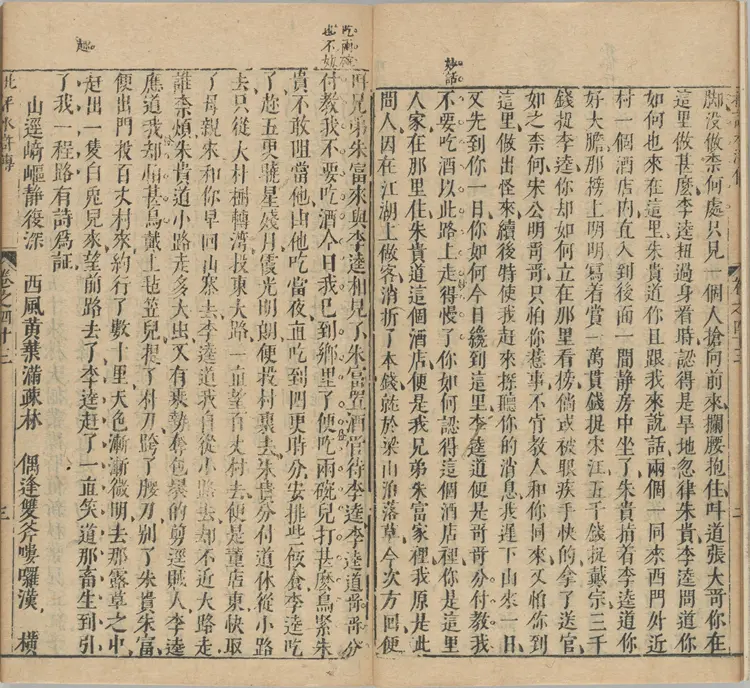 妙話
脚没做柰何處只見一個人搶向前來攔腰抱住叫道張大哥你在
這里做甚麼李逵扭過身看時認得是旱地忽律朱貴李逵問道你
如何也來在這里朱貴道你且跟我來說話兩個一同來西門外近
村一個酒店內直入到後面一間静房中坐了朱貴指着李逵道你
好大膽那榜上明明寫着賞一萬貫錢捉宋江五千錢捉戴宗三千
錢捉李逵你却如何立在那里看榜倘或被眼疾手快的拿了送官
如之柰何宋公明哥哥只怕你惹事不肯教人和你同來又怕你到
這里做出怪來續後特使我赶來探聽你的消息我遲下山來一日
又先到你一日你如何今日纔到這里李逵道便是哥哥分付教我
不要吃酒以此路上走得慢了你如何認得這個酒店裡你是這里
人家在那里住朱貴道這個酒店便是我兄弟朱富家裡我原是此
間人因在江湖上做客消折了本錢就於梁山泊落草今次方回便
吃兩碗
也不妨
趣
叫兄弟朱富來與李逵相見了朱富置酒管待李逵李逵道哥哥分
付教我不要吃酒今日我已到鄉里了便吃兩碗兒打甚麼鳥緊朱
貴不敢阻當他由他吃當夜直吃到四更時分安排些飯食李逵吃
了趂五更曉星殘月霞光明朗便投村裏去朱貴分付道休從小路
去只從大朴樹轉灣投東大路一直望百丈村去便是董店東快取
了母親來和你早回山寨去李逵道我自從小路去却不近大路走
誰柰煩朱貴道小路走多大虫又有乘勢奪包裹的剪逕賊人李逵
應道我却怕甚鳥戴上毡笠兒提了朴刀跨了腰刀别了朱貴朱富
便出門投百丈村來約行了數十里天色漸漸微明去那露草之中
赶出一隻白兎兒來望前路去了李逵赶了一直笑道那畜生到引
了我一程路有詩爲証
山逕崎嶇静復深 西風黄葉滿疎林 偶逢雙斧嘍囉漢 橫
卷之四十三 三